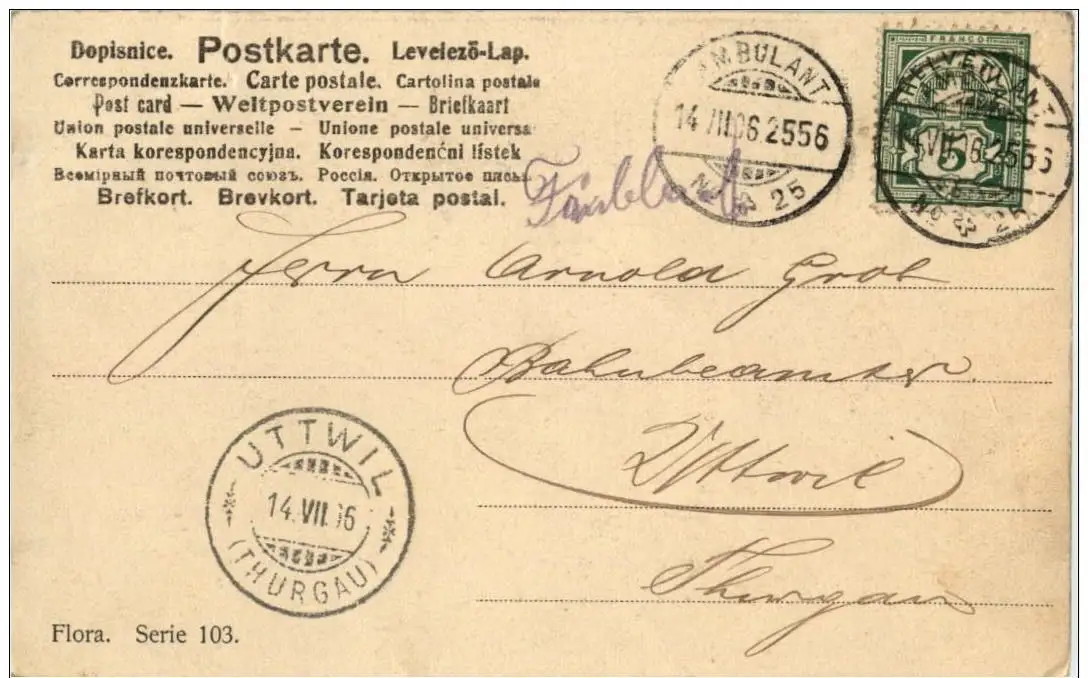 Dopisnice. Postkarte. Levelező-Lap.
Correspondenzkarte. Carte postale. Cartolina postale
Post card — Weltpostverein — Briefkaart
Union postale universelle — Unione postale universa
Karta korespondencyjna. Korespondenční lístek
Всемірный почтовый союзъ. Россія. Открытое письм
Brefkort. Brevkort. Tarjeta postal.
AMBULANT
14 VII 06 2556
No 25
FRANCO
HELVETIA
5
AMBULANT
VII 06 2556
No 25
Herrn Arnold Grob
Bahnbeamter
Uttwil
Thurgau
UTTWIL
14.VII.06
(THURGAU)
Flora. Serie 103.